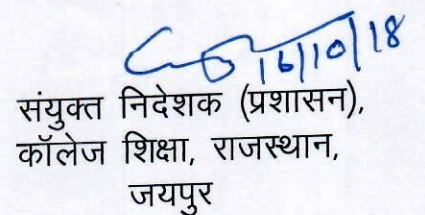 16/10/18
संयुक्त निदेशक (प्रशासन),
कॉलेज शिक्षा, राजस्थान,
जयपुर